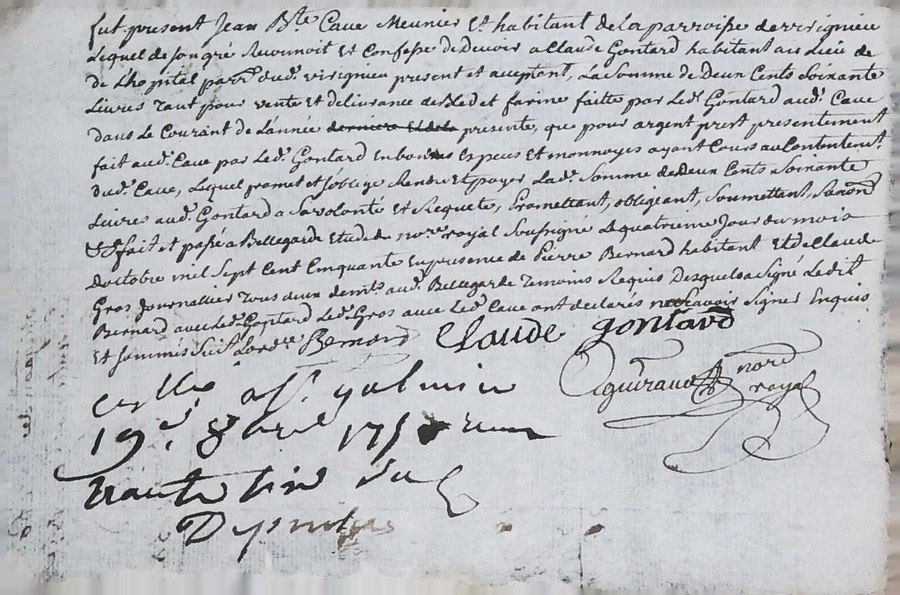 fut present Jean Bte Cave Meunier Et habitant de la parroisse de virignieu
Lequel de son gré Reconnoit Et Confesse De devoir a Claude Gontard habitant au Lieu de
de L'hopital parse. dud. virignieu present et acceptant, La Somme de Deux Cents Soixante
Livres Tant pour vente Et delivrance de bled et farine faitte par Led. Gontard aud. Cave
dans Le Courant de L'année derniere Et de la presente, que pour argent prest presentement
fait aud. Cave par Led. Gontard En bonnes Especes Et monnoyes ayant Cours au Contentemt.
dud. Cave, Lequel promet et s'oblige Rendre Et payer Lad. Somme de Deux Cents Soixante
Livres aud. Gontard a Sa volonté Et Requete, Promettant, obligeant, Soumettant, Renonct
&a fait et passé a Bellegarde Etude de nore royal Soussigné Le quatrieme Jour du mois
doctobre mil Sept Cent Cinquante En presence de Pierre Bernard habitant Et de Claude
Gros Journallier Tous deux demts. aud. Bellegarde Temoins Requis Desquels a Signé Ledit
Bernard avec Led. Gontard Led. Gros avec Led. Cave ont declarés ne Scavoir Signer Enquis
Et Sommés Suit. Lordce. Bernard Claude gontard
nore
royal
Collé a St galmier
19e. 8bre 1750